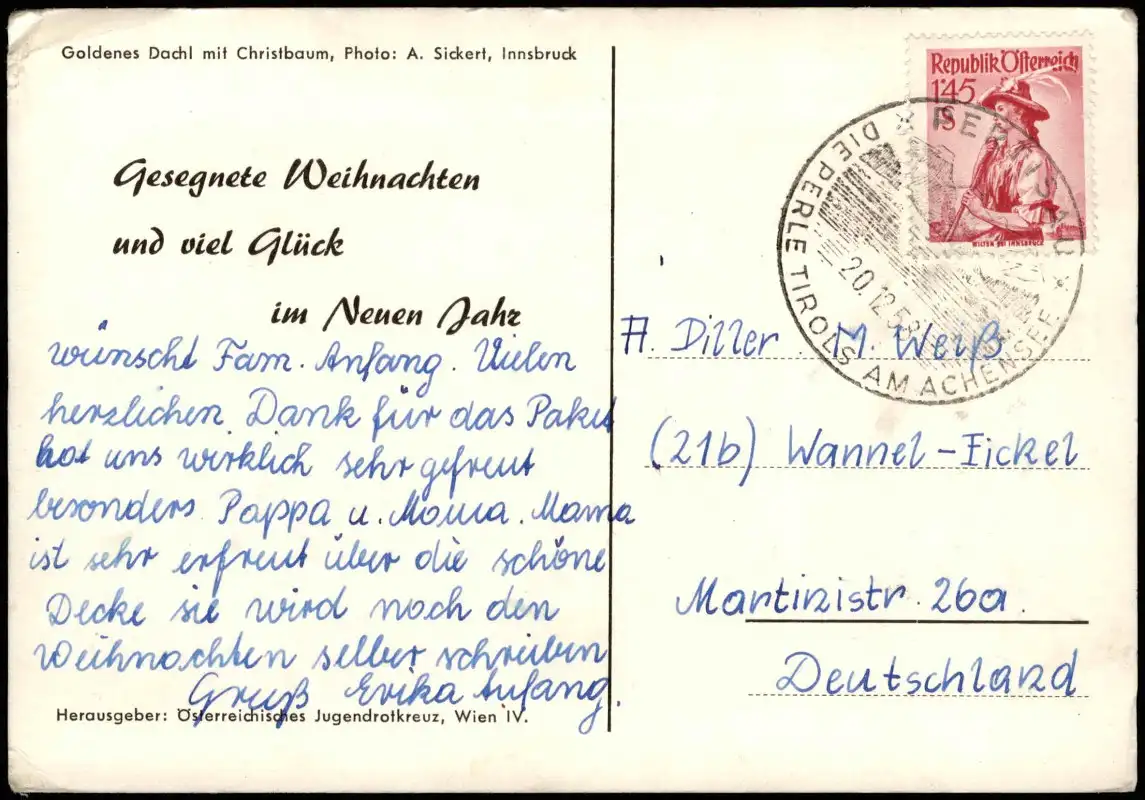 Goldenes Dachl mit Christbaum, Photo: A. Sickert, Innsbruck
Gesegnete Weihnachten
und viel Glück
im Neuen Jahr
wünscht Fam. Anfang. Vielen
herzlichen Dank für das Paket
hat uns wirklich sehr gefreut
besonders Pappa u. Mama. Mama
ist sehr erfreut über die schöne
Decke sie wird noch den
Weihnachten selber schreiben
Gruß Erika Anfang.
Herausgeber: Österreichisches Jugendrotkreuz, Wien IV.
Republik Österreich
1'45
S
WILTEN BEI INNSBRUCK
PERTISAU
DIE PERLE TIROLS AM ACHENSEE
20.12.53
A. Diller M. Weiß
(21b) Wannel-Eickel
Martinistr. 26a.
Deutschland